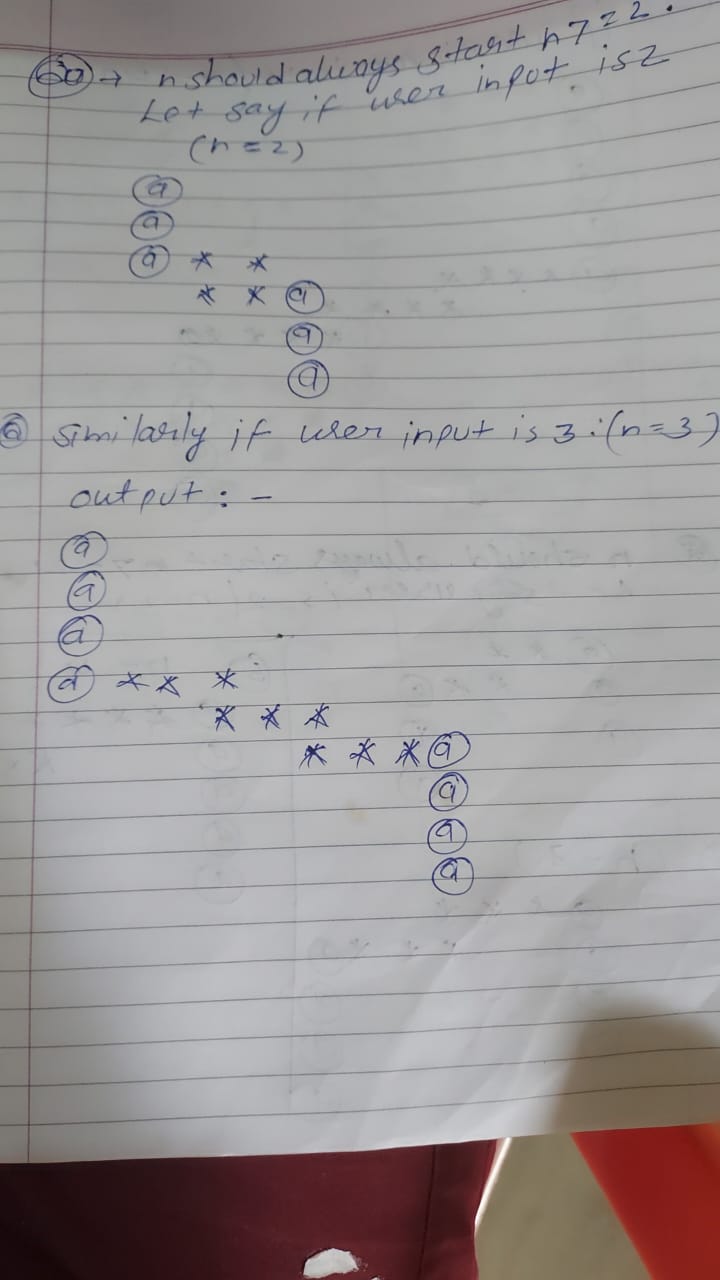 6a → n should always start n>=2.
Let say if user input is 2
(n=2)
@
@
@ * *
* * @
@
@
@ similarly if user input is 3:(n=3)
output : -
@
@
@
@ * * *
* * *
* * * @
@
@
@